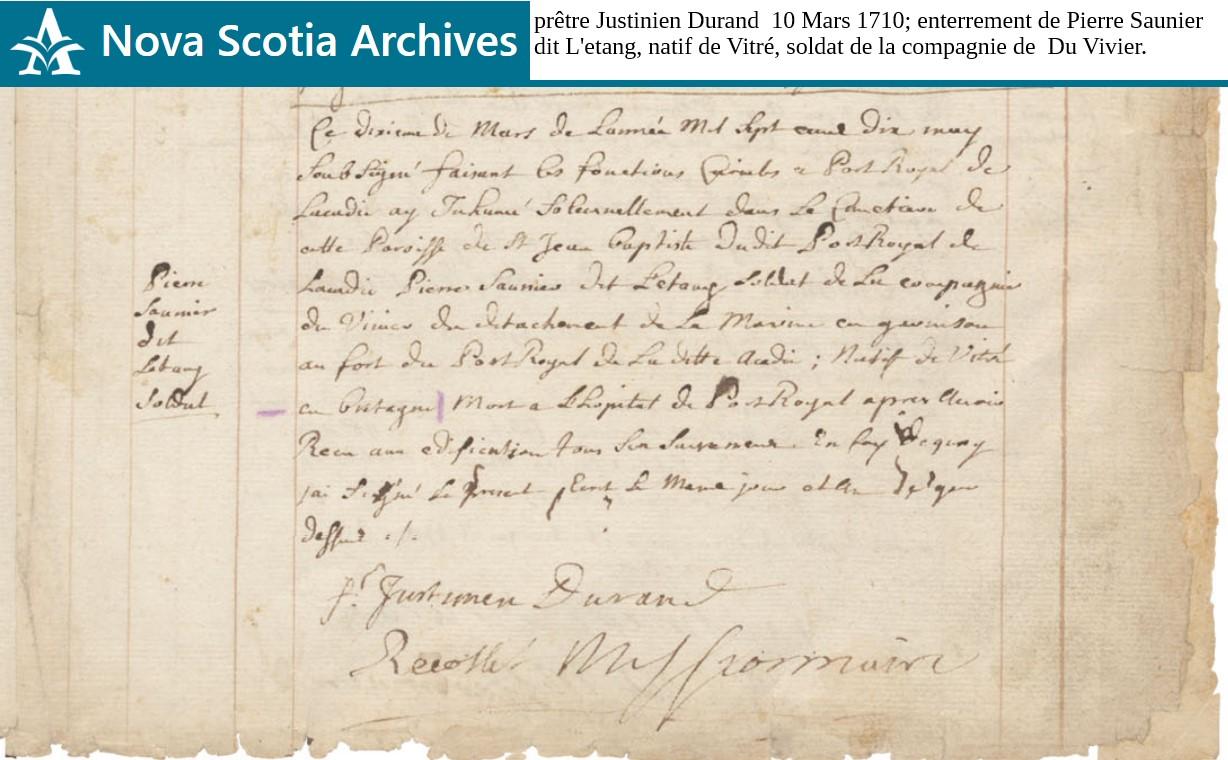 Nova Scotia Archives
prêtre Justinien Durand 10 Mars 1710; enterrement de Pierre Saunier
dit L'etang, natif de Vitré, soldat de la compagnie de Du Vivier.
Ce dixieme de Mars de Lannée Mil Sept cent dix moy
Soub Signé faisant les fonctions Curiales a Port Royal de
Lacadie ay Inhumé Solennellement dans Le Cimetiere de
cette Paroisse de St Jean baptiste dudit Port Royal de
Lacadie Pierre Saunier dit L'etang Soldat de La compagnie
du Vivier du detachement de La Marine en garnison
au fort du Port Royal de La ditte Acadie ; Natif de Vitré
en bretagne Mort a Lhopital de Port Royal apres Avoir
Receu aux edification tous Ses Sacremens. En foy de quoy
jai Signé Le present Ecrit Le Meme jour et An que
dessus ./.
Pierre
Saunier
dit
Letang
Soldat
fr. Justinien Durand
Recollet Missionnaire